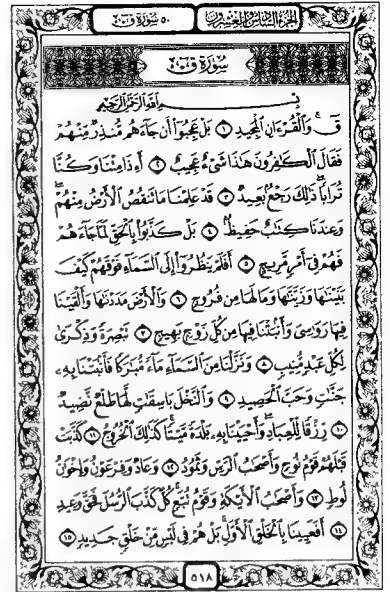 الجزء السادس والعشرون ٥٠ سورة ق
سورة ق
بسم الله الرحمن الرحيم
قٓ ۚ وَالْقُرْءَانِ الْمَجِيدِ ١ بَلْ عَجِبُوٓا۟ أَن جَآءَهُم مُّنذِرٌ مِّنْهُمْ
فَقَالَ الْكَٰفِرُونَ هَٰذَا شَىْءٌ عَجِيبٌ ٢ أَءِذَا مِتْنَا وَكُنَّا
تُرَابًا ۖ ذَٰلِكَ رَجْعٌۢ بَعِيدٌ ٣ قَدْ عَلِمْنَا مَا تَنقُصُ الْأَرْضُ مِنْهُمْ ۖ
وَعِندَنَا كِتَٰبٌ حَفِيظٌۢ ٤ بَلْ كَذَّبُوا۟ بِالْحَقِّ لَمَّا جَآءَهُمْ
فَهُمْ فِىٓ أَمْرٍ مَّرِيجٍ ٥ أَفَلَمْ يَنظُرُوٓا۟ إِلَى السَّمَآءِ فَوْقَهُمْ كَيْفَ
بَنَيْنَٰهَا وَزَيَّنَّٰهَا وَمَا لَهَا مِن فُرُوجٍ ٦ وَالْأَرْضَ مَدَدْنَٰهَا وَأَلْقَيْنَا
فِيهَا رَوَٰسِىَ وَأَنۢبَتْنَا فِيهَا مِن كُلِّ زَوْجٍۭ بَهِيجٍ ٧ تَبْصِرَةً وَذِكْرَىٰ
لِكُلِّ عَبْدٍ مُّنِيبٍ ٨ وَنَزَّلْنَا مِنَ السَّمَآءِ مَآءً مُّبَٰرَكًا فَأَنۢبَتْنَا بِهِۦ
جَنَّٰتٍ وَحَبَّ الْحَصِيدِ ٩ وَالنَّخْلَ بَاسِقَٰتٍ لَّهَا طَلْعٌ نَّضِيدٌ
١٠ رِّزْقًا لِّلْعِبَادِ ۖ وَأَحْيَيْنَا بِهِۦ بَلْدَةً مَّيْتًا ۚ كَذَٰلِكَ الْخُرُوجُ ١١ كَذَّبَتْ
قَبْلَهُمْ قَوْمُ نُوحٍ وَأَصْحَٰبُ الرَّسِّ وَثَمُودُ ١٢ وَعَادٌ وَفِرْعَوْنُ وَإِخْوَٰنُ
لُوطٍ ١٣ وَأَصْحَٰبُ الْأَيْكَةِ وَقَوْمُ تُبَّعٍ ۚ كُلٌّ كَذَّبَ الرُّسُلَ فَحَقَّ وَعِيدِ
١٤ أَفَعَيِينَا بِالْخَلْقِ الْأَوَّلِ ۚ بَلْ هُمْ فِى لَبْسٍ مِّنْ خَلْقٍ جَدِيدٍ ١٥
٥١٨